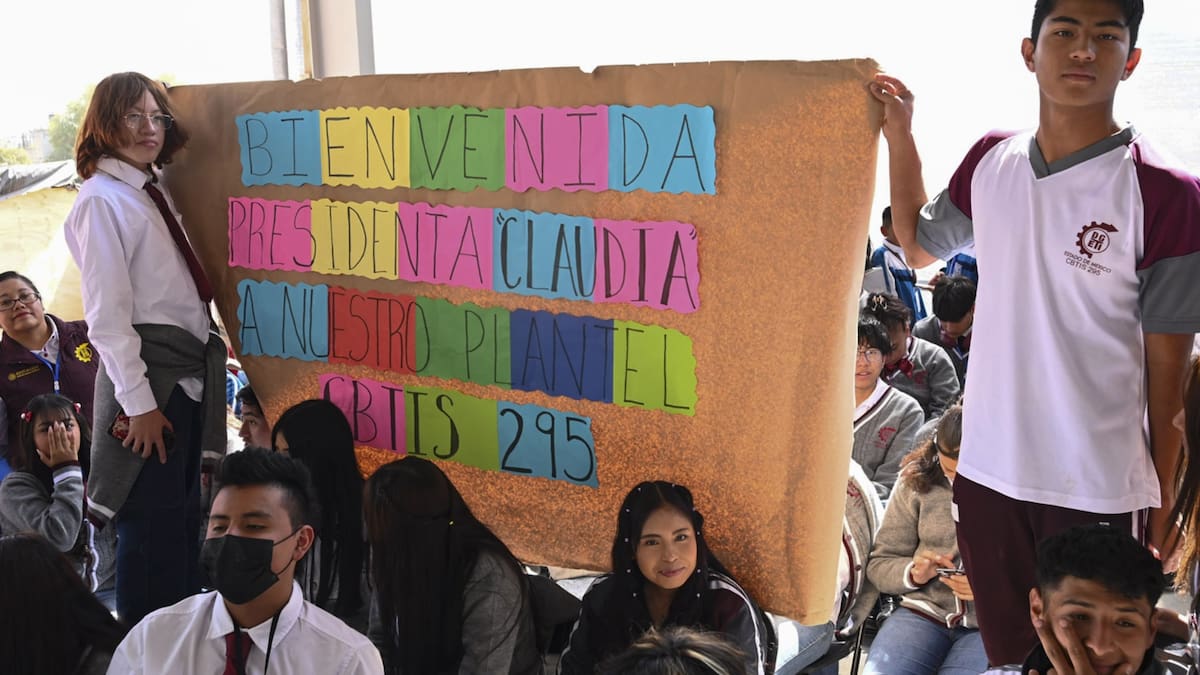 BIENVENIDA
PRESIDENTA "CLAUDIA"
A NUESTRO PLANTEL
CBTIS 295
DGETI
ESTADO DE MÉXICO
CBTIS 295